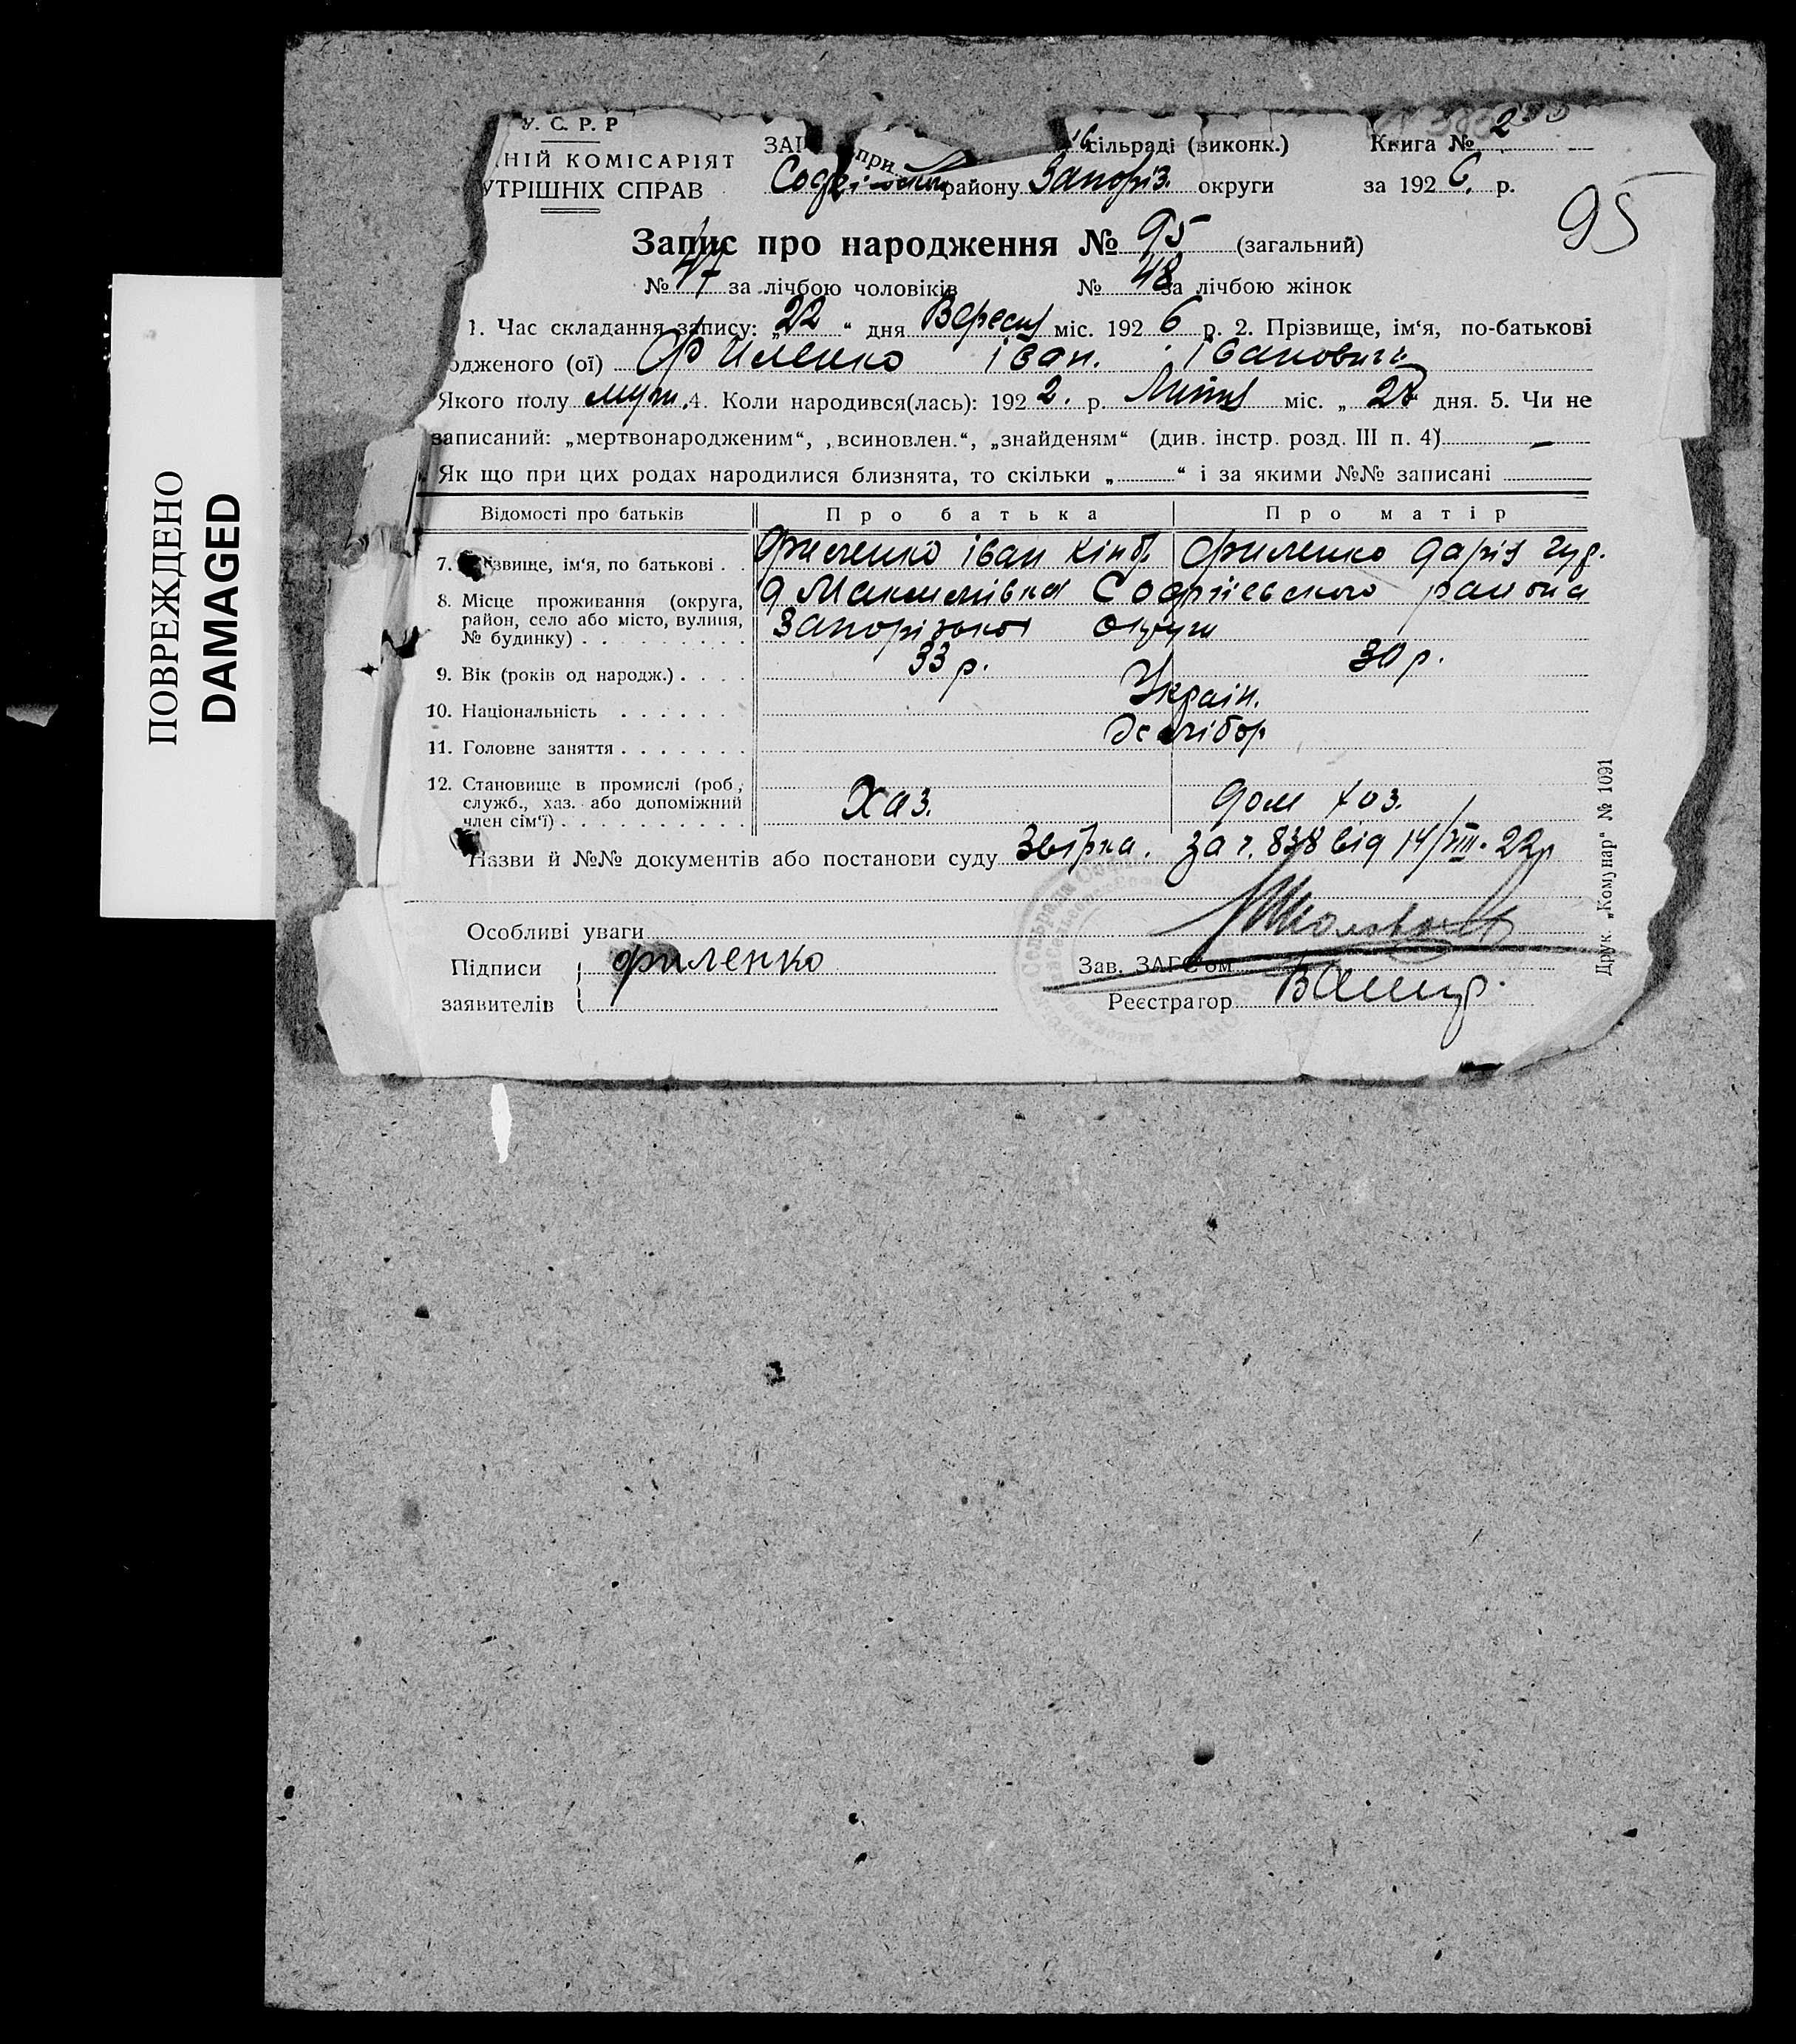 У. С. Р. Р
НІЙ КОМІСАРІЯТ
УТРІШНІХ СПРАВ
ЗАГ при сільраді (виконк.)
Софіївського району Запоріз. округи
Книга № 2
за 1926. р.
95
Запис про народження № 95 (загальний)
№ 47 за лічбою чоловіків № 48 за лічбою жінок
1. Час складання запису: „22“ дня Вересня міс. 1926 р. 2. Прізвище, ім‘я, по-батькові
одженого (ої) Филенко іван. івановичъ
Якого полу муж. 4. Коли народився(лась): 1922. р. Липня міс. „28 дня. 5. Чи не
записаний: „мертвонародженим“, „всиновлен.“, „знайденям“ (див. інстр. розд. III п. 4) —
Як що при цих родах народилися близнята, то скільки „ “ і за якими №№ записані
Відомості про батьків Про батька Про матір
7. ізвище, ім‘я, по батькові . . Филенко іван Кіндр Филенко Дарія
8. Місце проживання (округа, район, село або місто, вулиця, № будинку) . . . . . . . . . Д Максимівка Софіевського района
Запорізької округи
9. Вік (років од народж.) . . . . 33 р. 30 р.
10. Національність . . . . . . Украін.
11. Головне заняття . . . . . . . хлібор
12. Становище в промислі (роб., служб., хаз. або допоміжний член сім‘ї) . . . . . . . . . . Хаз. дом хоз.
Назви й №№ документів або постанови суду за ч. 838 від 14/VIII. 22р
Особливі уваги
Підписи заявителів { филенко
Зав. ЗАГС‘ом
Реєстратор
Друк. „Комунар“ № 1091
ПОВРЕЖДЕНО
DAMAGED